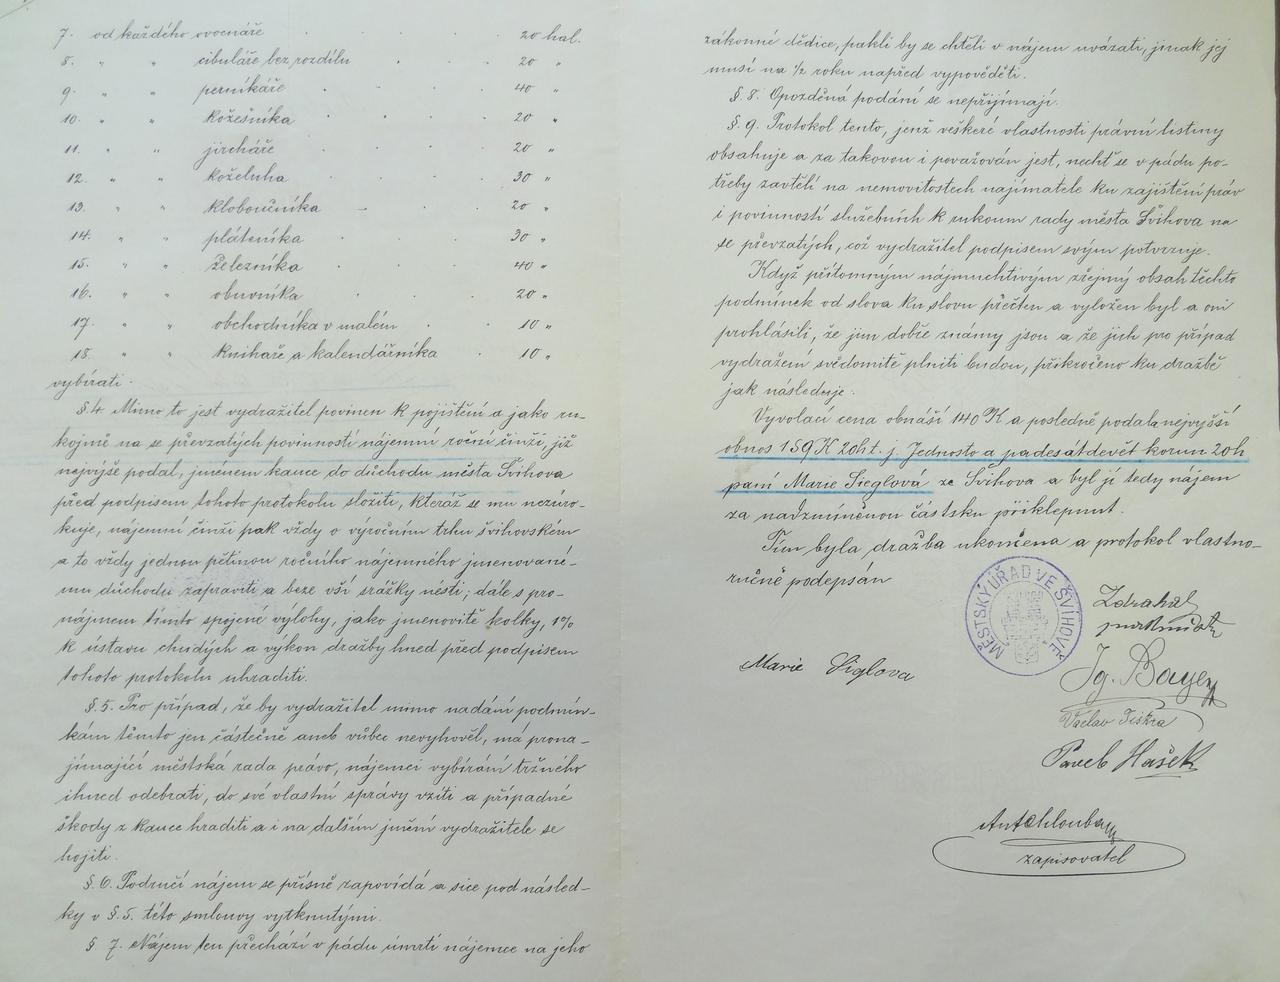 7. od každého ovocnáře . . . . 20 hal.
8. „ „ cibuláře bez rozdílu . . . 20 „
9. „ „ perníkáře . . . . 40 „
10. „ „ kožešníka . . . . 20 „
11. „ „ jircháře . . . . 20 „
12. „ „ koželuha . . . . 30 „
13. „ „ kloboučníka – . . . 20 „
14. „ „ pláteníka . . . . 30 „
15. „ „ železníka . . . . 40 „
16. „ „ obuvníka . . . . 20 „
17. „ „ obchodníka v malém . . 10 „
18. „ „ knihaře a kalendářníka . 10 „
vybírati.
§.4. Mimo to jest vydražitel povinen k pojištění a jako ru-
kojmě na se převzatých povinností nájemní roční činži, již
nejvýše podal, jménem kauce do důchodu města Švihova
před podpisem tohoto protokolu složiti, kteráž se mu nezúro-
kuje, nájemní činži pak vždy o výročním trhu švihovském
a to vždy jednou pětinou ročního nájemného jmenované-
mu důchodu zapraviti a beze vší srážky nésti; dále s pro-
nájmem tímto spojené výlohy, jako jmenovitě kolky, 1%
k ústavu chudých a výkon dražby hned před podpisem
tohoto protokolu uhraditi.
§.5. Pro případ, že by vydražitel mimo nadání podmín-
kám těmto jen částečně aneb vůbec nevyhověl, má prona-
jímající městská rada právo, nájemci vybírání tržného
ihned odebrati, do své vlastní správy vzíti a případné
škody z kauce hraditi a i na dalším jmění vydražitele se
hojiti.
§.6. Područí nájem se přísně zapovídá a sice pod násled-
ky v §.5. této smlouvy vytknutými.
§ 7. Nájem ten přechází v pádu úmrtí nájemce na jeho
zákonné dědice, pakli by se chtěli v nájem uvázati, jinak jej
musí na 1/2 roku napřed vypověděti.
§.8. Opozděná podání se nepřijímají.
§.9. Protokol tento, jenž veškeré vlastnosti právní listiny
obsahuje a za takovou i považován jest, nechť se v pádu po-
třeby zavtělí na nemovitostech najímatele ku zajištění práv
i povinností služebních k rukoum rady města Švihova na
se převzatých, což vydražitel podpisem svým potvrzuje.
Když přítomným nájmuchtivým zřejmý obsah těchto
podmínek od slova ku slovu přečten a vyložen byl a oni
prohlásili, že jim dobře známy jsou a že jich pro případ
vydražení svědomitě plniti budou, přikročeno ku dražbě
jak následuje.
Vyvolací cena obnáší 140 K a posledně podala nejvyšší
obnos 159 K 20h t. j. Jednosto a padesátdevět korun 20h
paní Marie Sieglová ze Švihova a byl jí tedy nájem
za nadzmíněnou částsku přiklepnut.
Tím byla dražba ukončena a protokol vlastno-
ručně podepsán
MĚSTSKÝ ÚŘAD VE ŠVIHOVĚ
Zdrahal
Marie Siglova
Jg. Bayer
Václav Tiskra
Paveb Hašek
Ant. Chlouba
zapisovatel